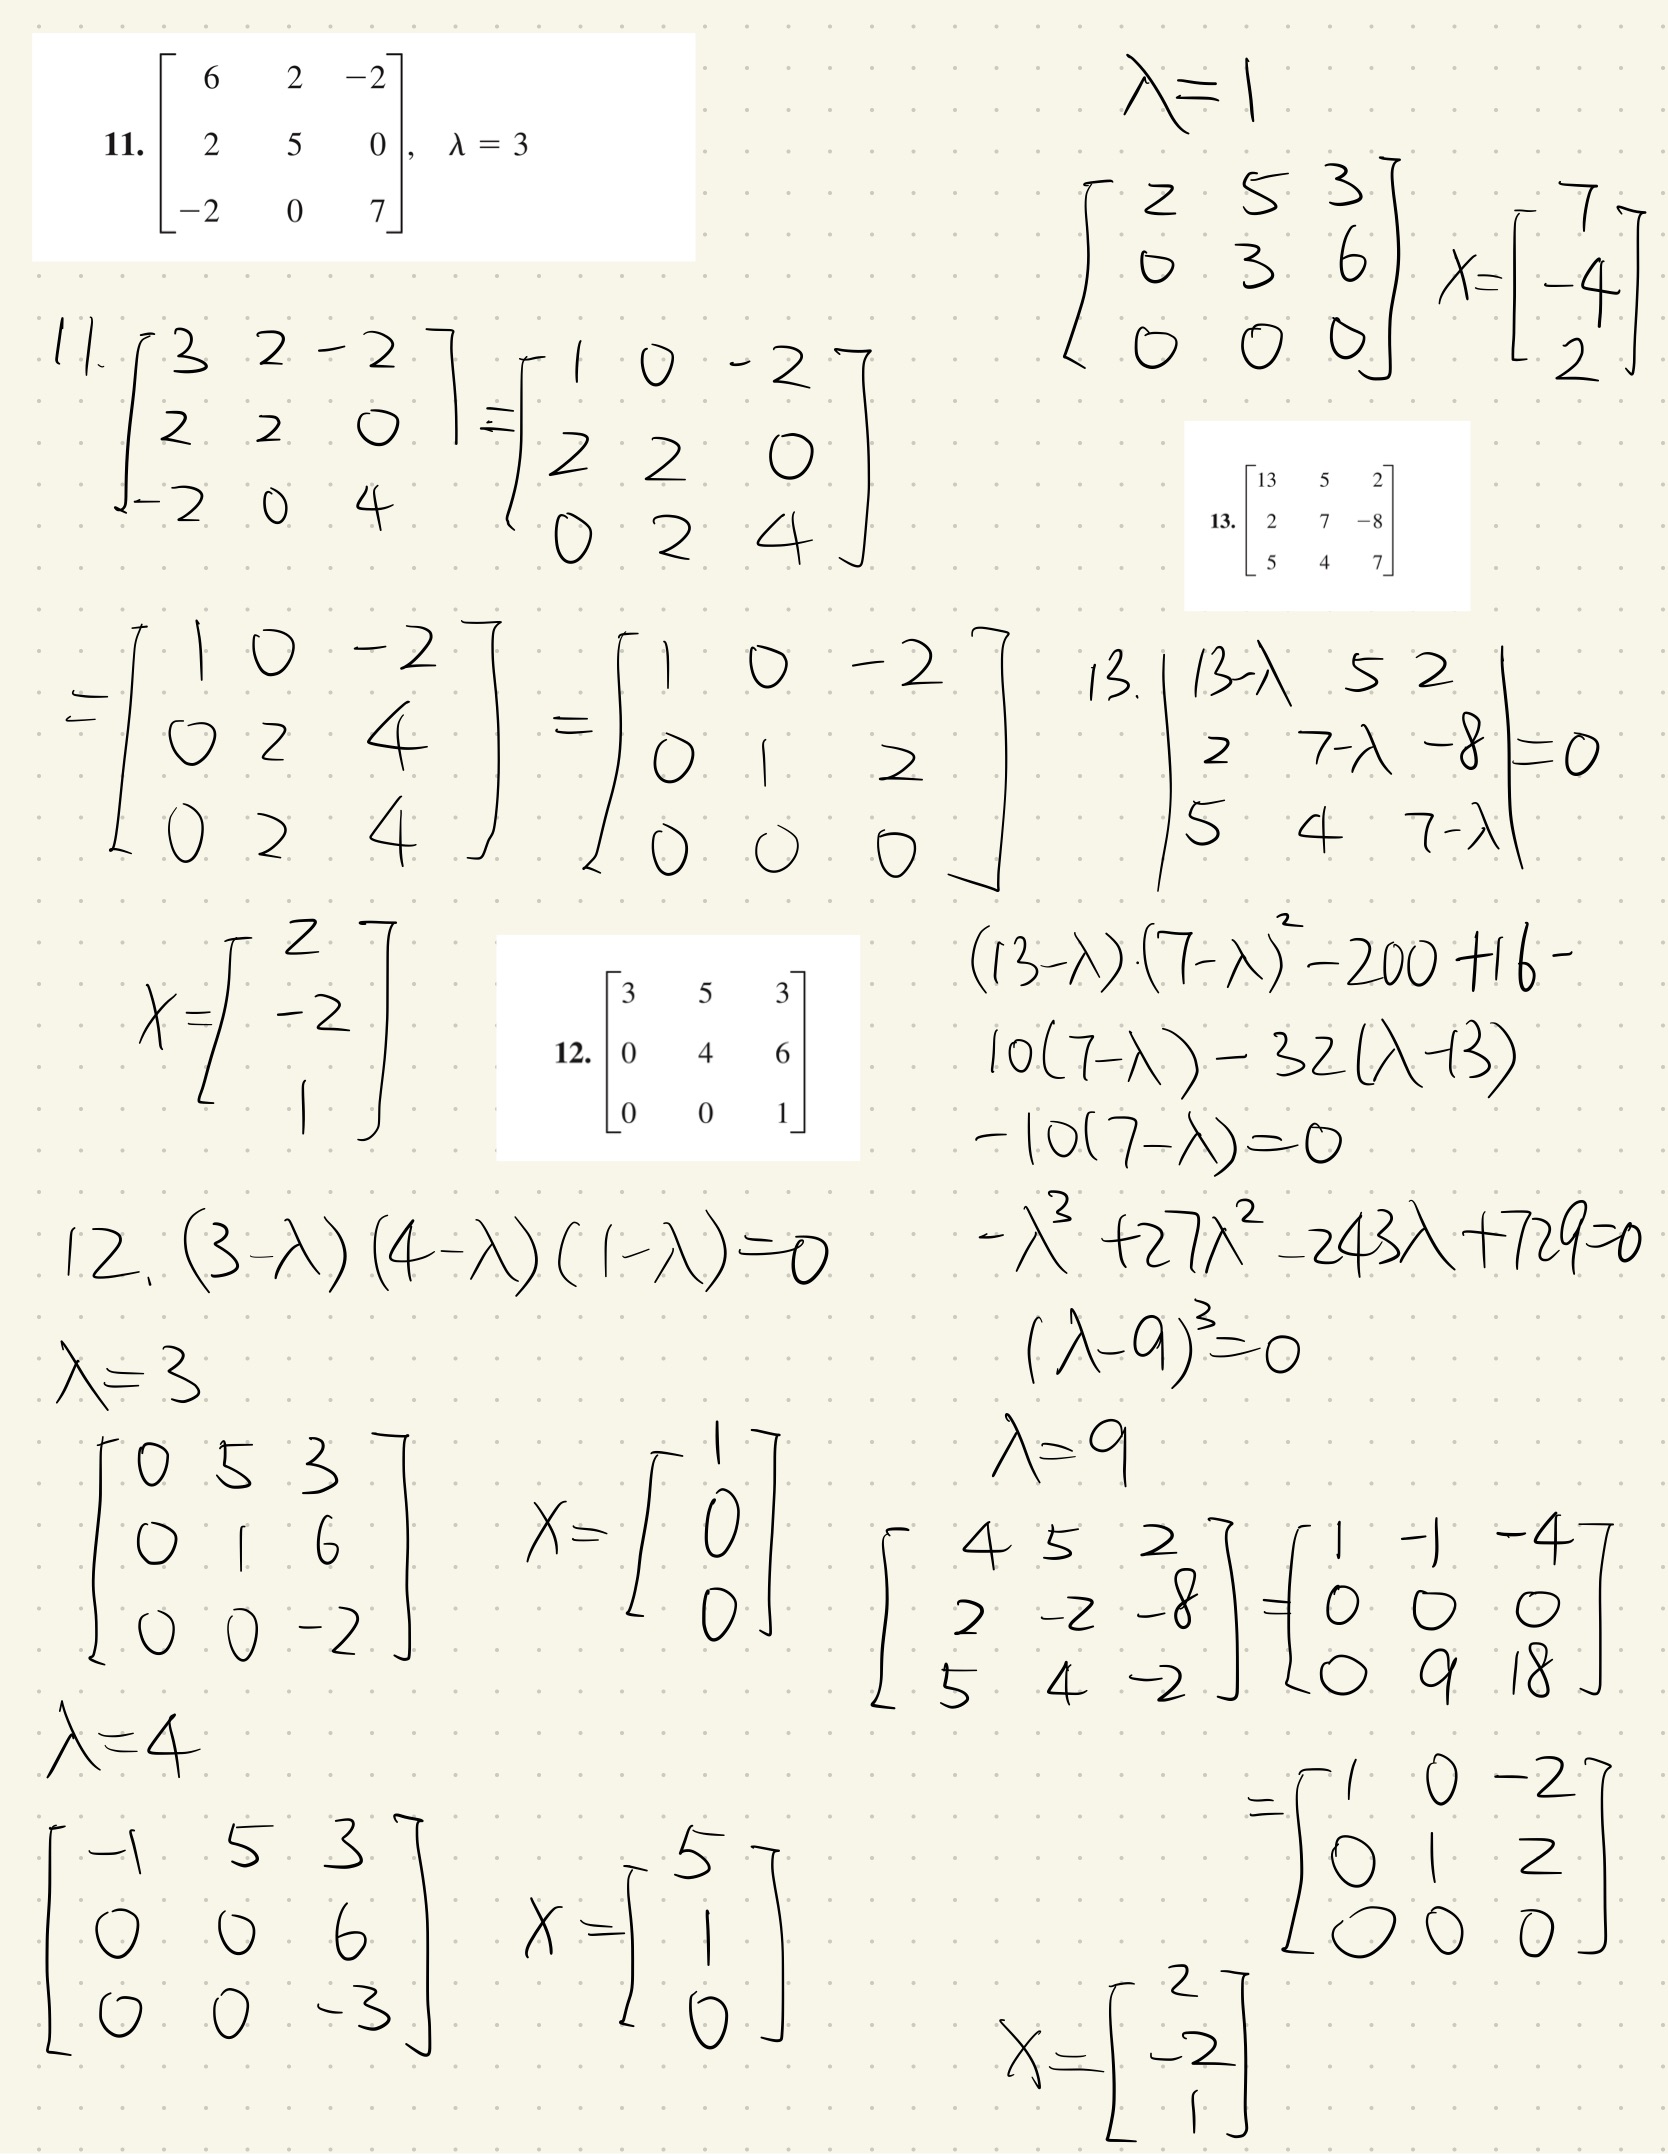 11. [6 2 −2
2 5 0
−2 0 7], λ = 3
11. [3 2 -2
2 2 0
-2 0 4]
= [1 0 -2
2 2 0
0 2 4]
= [1 0 -2
0 2 4
0 2 4]
= [1 0 -2
0 1 2
0 0 0]
X = [2
-2
1]
12. [3 5 3
0 4 6
0 0 1]
12. (3-λ)(4-λ)(1-λ)=0
λ=3
[0 5 3
0 1 6
0 0 -2]
X = [1
0
0]
λ=4
[-1 5 3
0 0 6
0 0 -3]
X = [5
1
0]
λ=1
[2 5 3
0 3 6
0 0 0]
X = [7
-4
2]
13. [13 5 2
2 7 −8
5 4 7]
13. |13-λ 5 2
2 7-λ -8
5 4 7-λ| = 0
(13-λ)·(7-λ)² -200 +16 -
10(7-λ) - 32(λ-13)
-10(7-λ)=0
-λ³ +27λ² -243λ +729=0
(λ-9)³=0
λ=9
[4 5 2
2 -2 -8
5 4 -2]
= [1 -1 -4
0 0 0
0 9 18]
= [1 0 -2
0 1 2
0 0 0]
X = [2
-2
1]